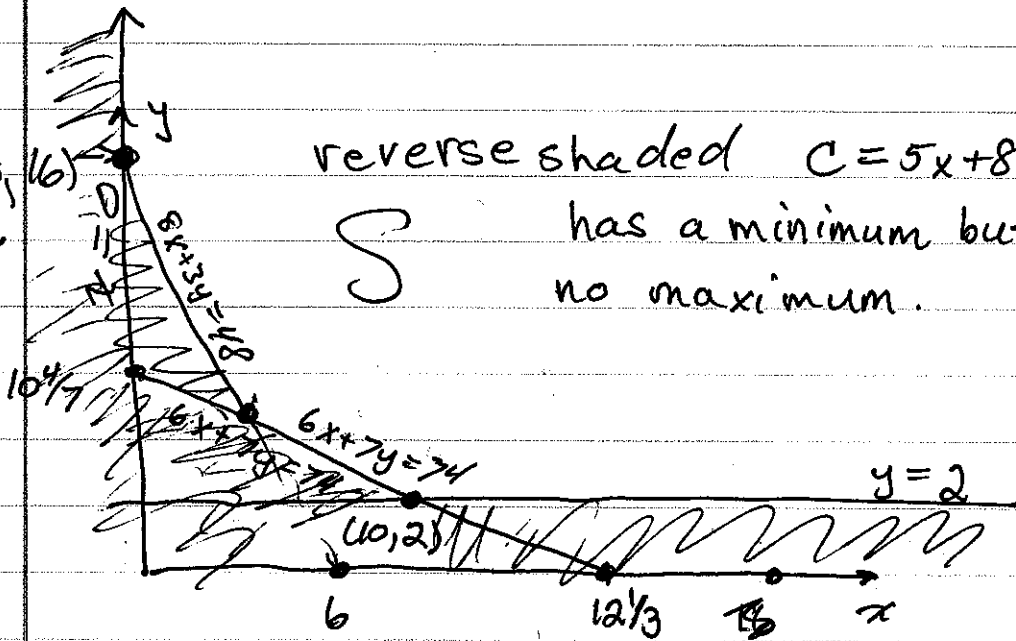 y
, 16)
reverse shaded C = 5x + 8
S has a minimum bu
no maximum.
x = 0
8x + 3y = 48
10 4/7
6x + 7y = 74
6x + 7y = 74
y = 2
(10, 2)
6
12 1/3
x